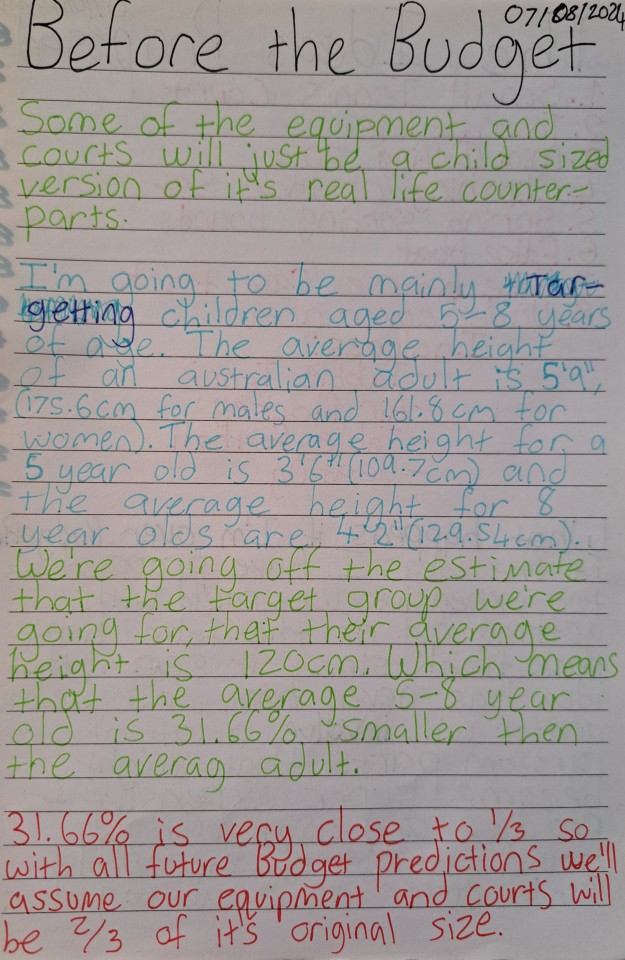 07/08/2024
Before the Budget
Some of the equipment and
courts will just be a child sized
version of it's real life counter-
parts.
I'm going to be mainly Tar-
getting children aged 5-8 years
of age. The average height
of an australian adult is 5'9",
(175.6cm for males and 161.8cm for
women). The average height for a
5 year old is 3'6" (109.7cm) and
the average height for 8
year olds are 4'2" (129.54cm).
We're going off the estimate
that the target group we're
going for, that their average
height is 120cm. Which means
that the average 5-8 year
old is 31.66% smaller then
the averag adult.
31.66% is very close to 1/3 so
with all future Budget predictions we'll
assume our equipment and courts will
be 2/3 of it's original size.